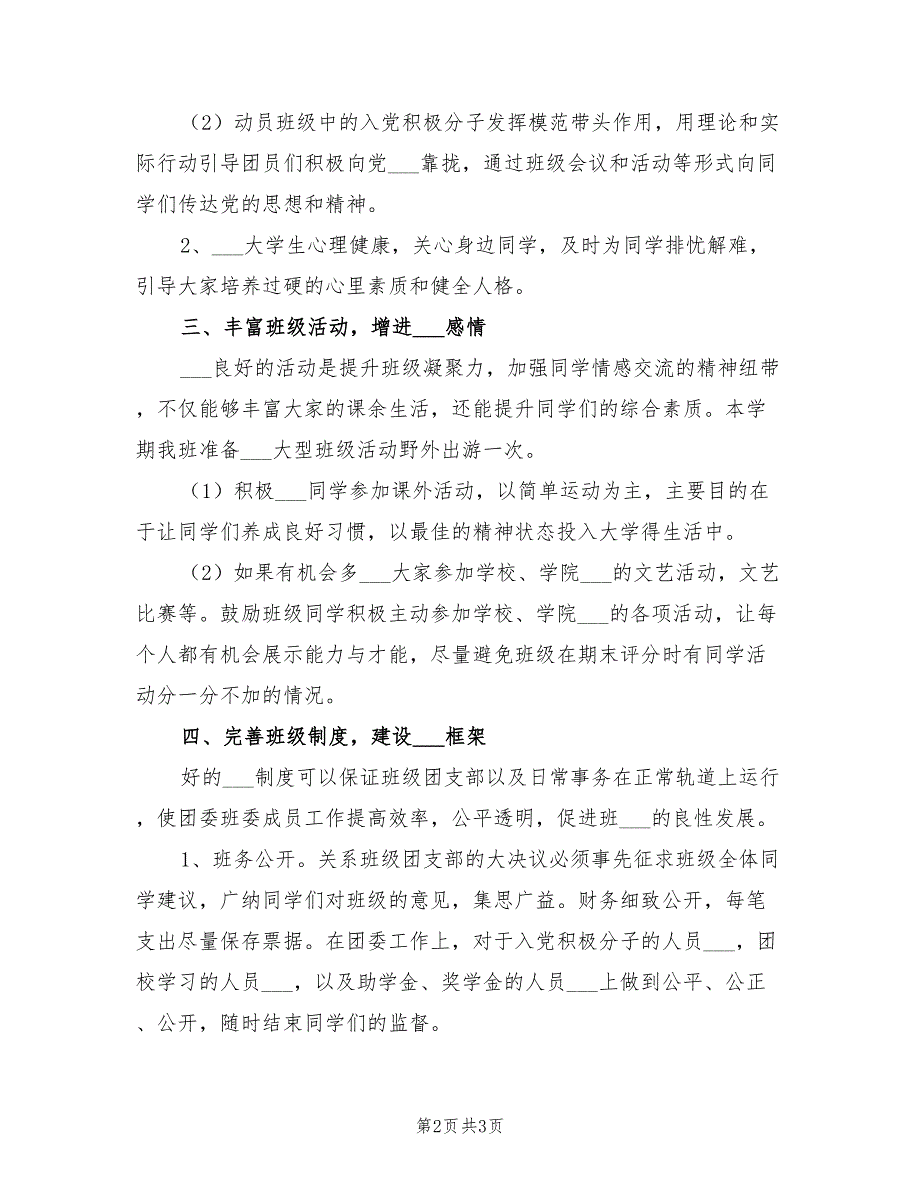 （2）动员班级中的入党积极分子发挥模范带头作用，用理论和实
际行动引导团员们积极向党___靠拢，通过班级会议和活动等形式向同
学们传达党的思想和精神。
2、___大学生心理健康，关心身边同学，及时为同学排忧解难，
引导大家培养过硬的心里素质和健全人格。
三、丰富班级活动，增进___感情
___良好的活动是提升班级凝聚力，加强同学情感交流的精神纽带
，不仅能够丰富大家的课余生活，还能提升同学们的综合素质。本学
期我班准备___大型班级活动野外出游一次。
（1）积极___同学参加课外活动，以简单运动为主，主要目的在
于让同学们养成良好习惯，以最佳的精神状态投入大学得生活中。
（2）如果有机会多___大家参加学校、学院___的文艺活动，文艺
比赛等。鼓励班级同学积极主动参加学校、学院___的各项活动，让每
个人都有机会展示能力与才能，尽量避免班级在期末评分时有同学活
动分一分不加的情况。
四、完善班级制度，建设___框架
好的___制度可以保证班级团支部以及日常事务在正常轨道上运行
，使团委班委成员工作提高效率，公平透明，促进班___的良性发展。
1、班务公开。关系班级团支部的大决议必须事先征求班级全体同
学建议，广纳同学们对班级的意见，集思广益。财务细致公开，每笔
支出尽量保存票据。在团委工作上，对于入党积极分子的人员___，团
校学习的人员___，以及助学金、奖学金的人员___上做到公平、公正
、公开，随时结束同学们的监督。
第2页共3页